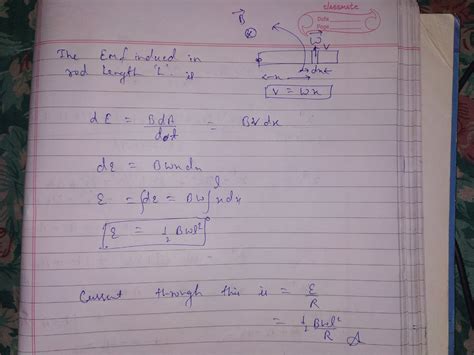 classmate
Date
Page
B⃗
⊗
The Emf induced in
rod length 'L' is
W⃗
v
x
dx
v = wx
dℰ = BdA/dt = Bvdx
dℰ = Bwxdx
ℰ = ∫dℰ = Bw∫₀ˡ xdx
ℰ = ½ Bwl²
Current through this is = ℰ/R
= ½ Bwl²/R A